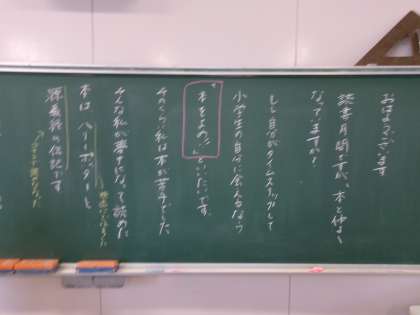 おはようございます
読書月間ですが、本と仲よく
なってますか?
もし自分がタイムスリップして
小学生の自分に会えるなら
"本をよめ!!"といいたいです。
そのくらい私は本が苦手でした
そんな私が夢中になって読めた
本は ハリーポッターと
源義経の伝記です